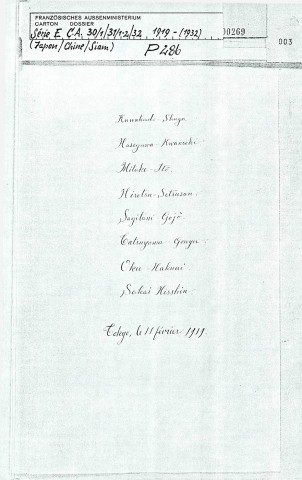 FRANZÖSISCHES AUSSENMINISTERIUM
CARTON DOSSIER
Série E, C.A. 30/1/31/1-2/32, 1919-(1932)
(Japan/Chine/Siam) P286
00269
003
Hasegawa-Kwanseki
Mitake-Itô
Hiretsu-Setsusan
Sugitani Gojô
Katsuyama-Gengo
Oku-Hakuai
Sakai Hisshin
Tokyo, le 11 février 1919.